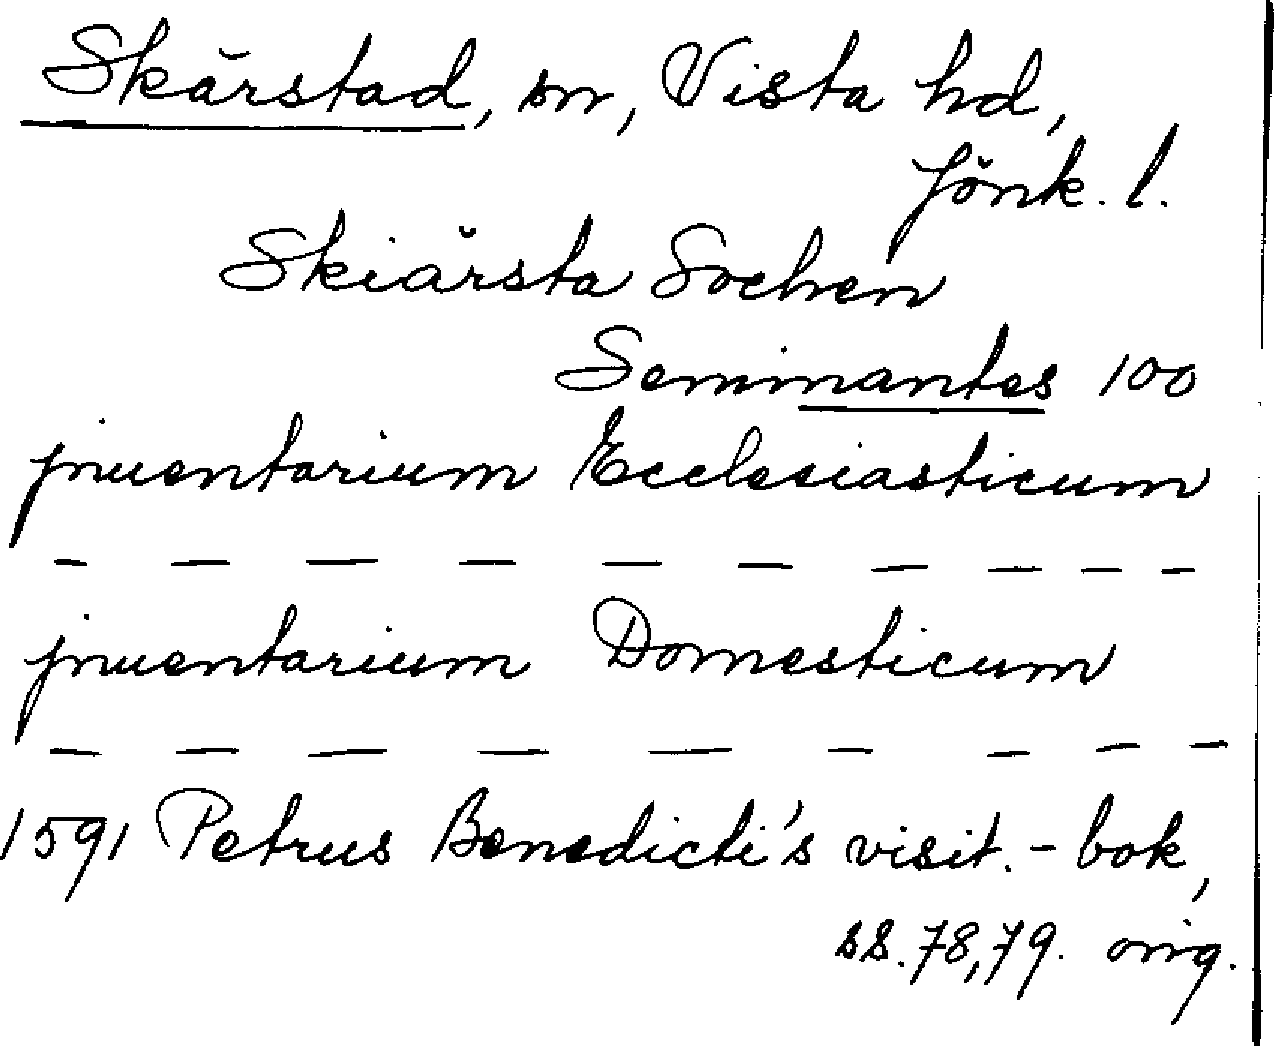 Skärstad, sn, Vista hd,
Jönk. l.
Skiärsta Sochen
Seminantes 100
jnuentarium Ecclesiasticum
— — — — — — — — — —
jnuentarium Domesticum
— — — — — — — — —
1591 Petrus Benedicti's visit.-bok,
ss. 78, 79. orig.